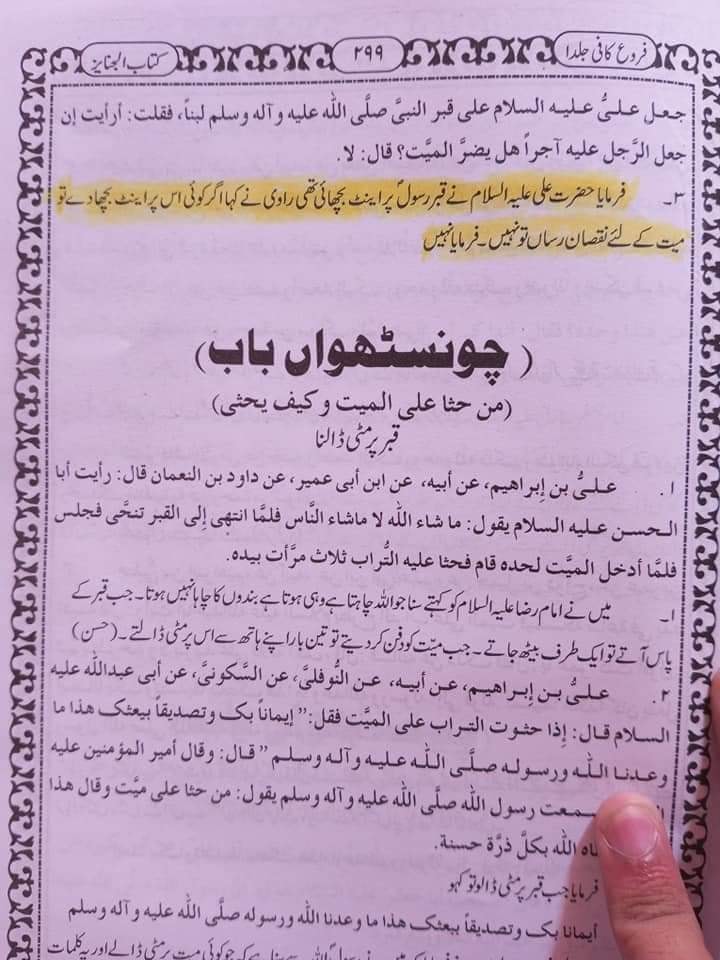 فروع کافی جلد۱
۲۹۹
کتاب الجنایز
جعل علیُّ علیه السلام علی قبر النبیَّ صلَّی اللّٰه علیه و آله وسلم لبناً، فقلت: أرأیت إن
جعل الرَّجل علیه آجراً هل یضرَّ المیَّت؟ قال: لا.
۳۔ فرمایا حضرت علی علیہ السلام نے قبر رسولؐ پر اینٹ بچھائی تھی راوی نے کہا اگر کوئی اس پر اینٹ بچھا دے تو
میت کے لئے نقصان رساں تو نہیں۔ فرمایا نہیں
( چونسٹھواں باب )
(من حثا علی المیت و کیف یحثی)
قبر پر مٹی ڈالنا
۱. علیُّ بن إبراهیم، عن أبیه، عن ابن أبی عمیر، عن داود بن النعمان قال: رأیت أبا
الحسن علیه السلام یقول: ما شاء اللّٰه لا ماشاء النَّاس فلمَّا انتهی إلی القبر تنحَّی فجلس
فلمَّا أدخل المیَّت لحده قام فحثا علیه التُّراب ثلاث مرَّات بیده.
۱۔ میں نے امام رضا علیہ السلام کو کہتے سنا جو اللہ چاہتا ہے وہی ہوتا ہے بندوں کا چاہا نہیں ہوتا۔ جب قبر کے
پاس آتے تو ایک طرف بیٹھ جاتے۔ جب میّت کو دفن کر دیتے تو تین بار اپنے ہاتھ سے اس پر مٹی ڈالتے۔ (حسن)
۲. علیُّ بن إبراهیم، عن أبیه، عن النُّوفلیَّ، عن السَّکونیَّ، عن أبی عبداللّٰه علیه
السلام قال: إذا حثوت التراب علی المیَّت فقل:" إیماناً بک وتصدیقاً ببعثک هذا ما
وعدنا اللّٰه ورسوله صلَّی اللّٰه علیه و آله وسلم " قال: وقال أمیر المؤمنین علیه
سمعت رسول اللّٰه صلَّی اللّٰه علیه و آله وسلم یقول: من حثا علی میَّت وقال هذا
اللّٰه بکلَّ ذرَّة حسنة.
فرمایا جب قبر پر مٹی ڈالو تو کہو
أیمانا بک وتصدیقاً ببعثک هذا ما وعدنا اللّٰه ورسوله صلَّی اللّٰه علیه و آله وسلم
سنا ہے کہ جو کوئی میت پر مٹی ڈالے اور یہ کلمات